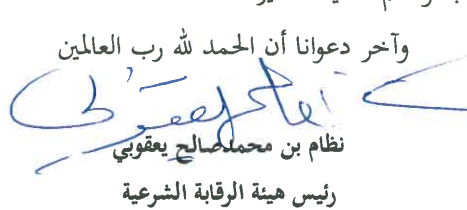 وآخر دعوانا أن الحمد لله رب العالمين
نظام بن محمد صالح يعقوبي
رئيس هيئة الرقابة الشرعية